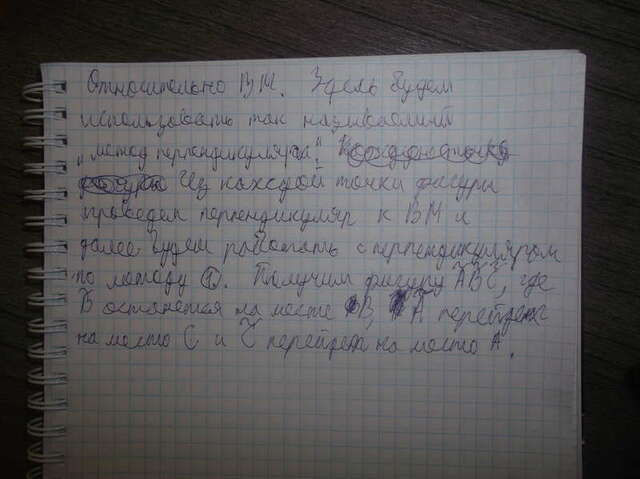 Относительно ВМ. Здесь будем
использовать так называемый
"метод перпендикуляра".
Из каждой точки фигуры
проведем перпендикуляр к ВМ и
далее будем работать с перпендикуляром
по методу ①. Получим фигуру А̃В̃С̃, где
В̃ останется на месте В, Ã перейдет
на место С и С̃ перейдет на место А.